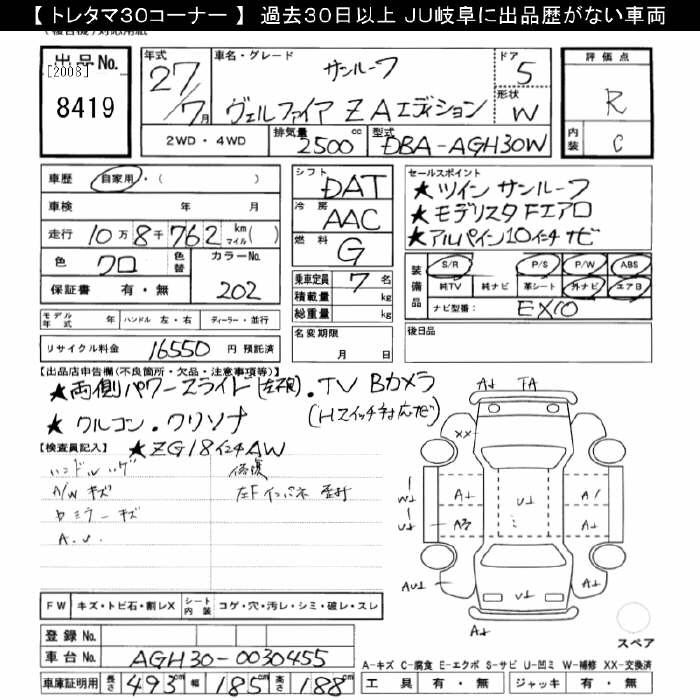 【 トレタマ30コーナー 】 過去30日以上 JU岐阜に出品歴がない車両
出品No.
[2008]
8419
年式
27/7月
車名・グレード
サンルーフ
ヴェルファイア ZAエディション
ドア
5
形状
W
評価点
R
内装
C
2WD・4WD
排気量
2500 cc
型式
DBA-AGH30W
車歴 自家用・( )
車検 年 月
走行 10万8千762 km マイル( )
色 クロ
色替
カラーNo.
202
保証書 有・無
モデル年式 年 ハンドル 左・右 ディーラー・並行
リサイクル料金 16550 円 預託済
シフト DAT
冷房 AAC
燃料 G
乗車定員 7 名
積載量 kg
総重量 kg
名変期限
月 日
セールスポイント
★ツインサンルーフ
★モデリスタFエアロ
★アルパイン10インチナビ
装備品
S/R P/S P/W ABS
純TV 純ナビ 革シート 外ナビ エアB
ナビ型番: EX10
後日品
【出品店申告欄(不良箇所・欠品・注意事項等)】
★両側パワースライド(左不良)・TV Bカメラ
★クルコン・クリソナ (Hスイッチ対応だ)
★ZG18インチAW
【検査員記入】
ハンドルハゲ
A/W キズ
ヒョミラー キズ
A.U.
修復
左Fインパネ
FW キズ・トビ石・割レX シート内装 コゲ・穴・汚レ・シミ・破レ・スレ
登録No.
車台No. AGH30-0030455
車庫証明用 長さ 493 cm 幅 185 cm 高さ 188 cm
A↓ TA
XX
W↓ A↓ U↓ A/
U↓ A3 A↓
AU↓ U↓ A↓
A↓
スペア
A-キズ C-腐食 E-エクボ S-サビ U-凹ミ W-補修 XX-交換済
工具 有・無 ジャッキ 有・無